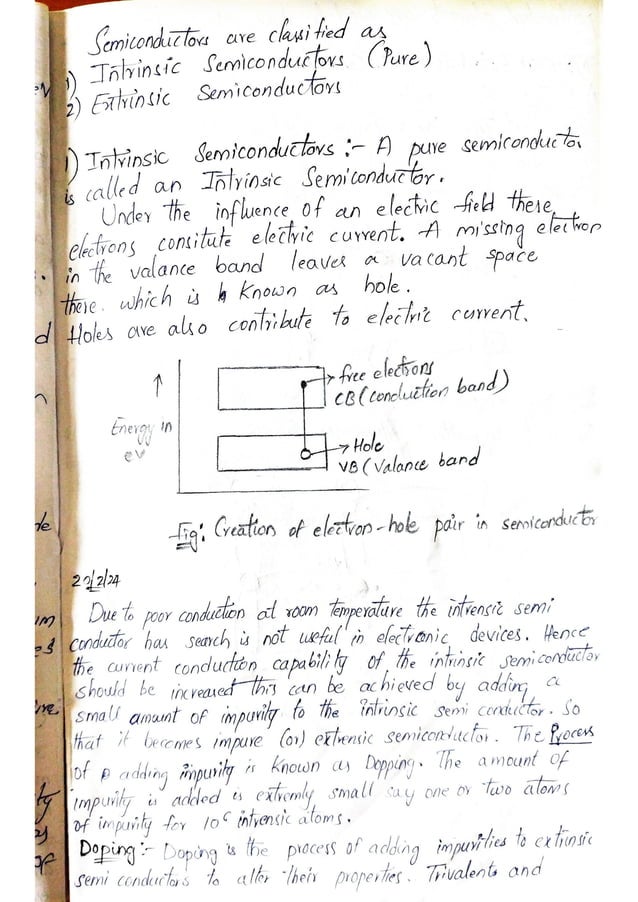 Semiconductors are classified as
1) Intrinsic Semiconductors (Pure)
2) Extrinsic Semiconductors
1) Intrinsic Semiconductors :- A pure semiconductor
is called an Intrinsic Semiconductor.
Under the influence of an electric field these
electrons consitute electric current. A missing electron
in the valance band leaves a vacant space
there. which is known as hole.
Holes are also contribute to electric current.
free electrons
CB (conduction band)
Energy in
ev
Hole
VB (Valance band
Fig: Creation of electron-hole pair in semiconductor
Due to poor conduction at room temperature the intrensic semi
conductor has search is not useful in electronic devices. Hence
the current conduction capability of the intrinsic semiconductor
should be increased this can be achieved by adding a
small amount of impurity to the intrinsic semi conductor. So
that it becomes impure (or) extrensic semiconductor. The Process
of adding impurity is known as Dopping. The amount of
impurity is added is extremly small say one or two atoms
of impurity for 10⁶ intrensic atoms.
Doping :- Doping is the process of adding impurities to extrinsic
semi conductors to alter their properties. Trivalents and